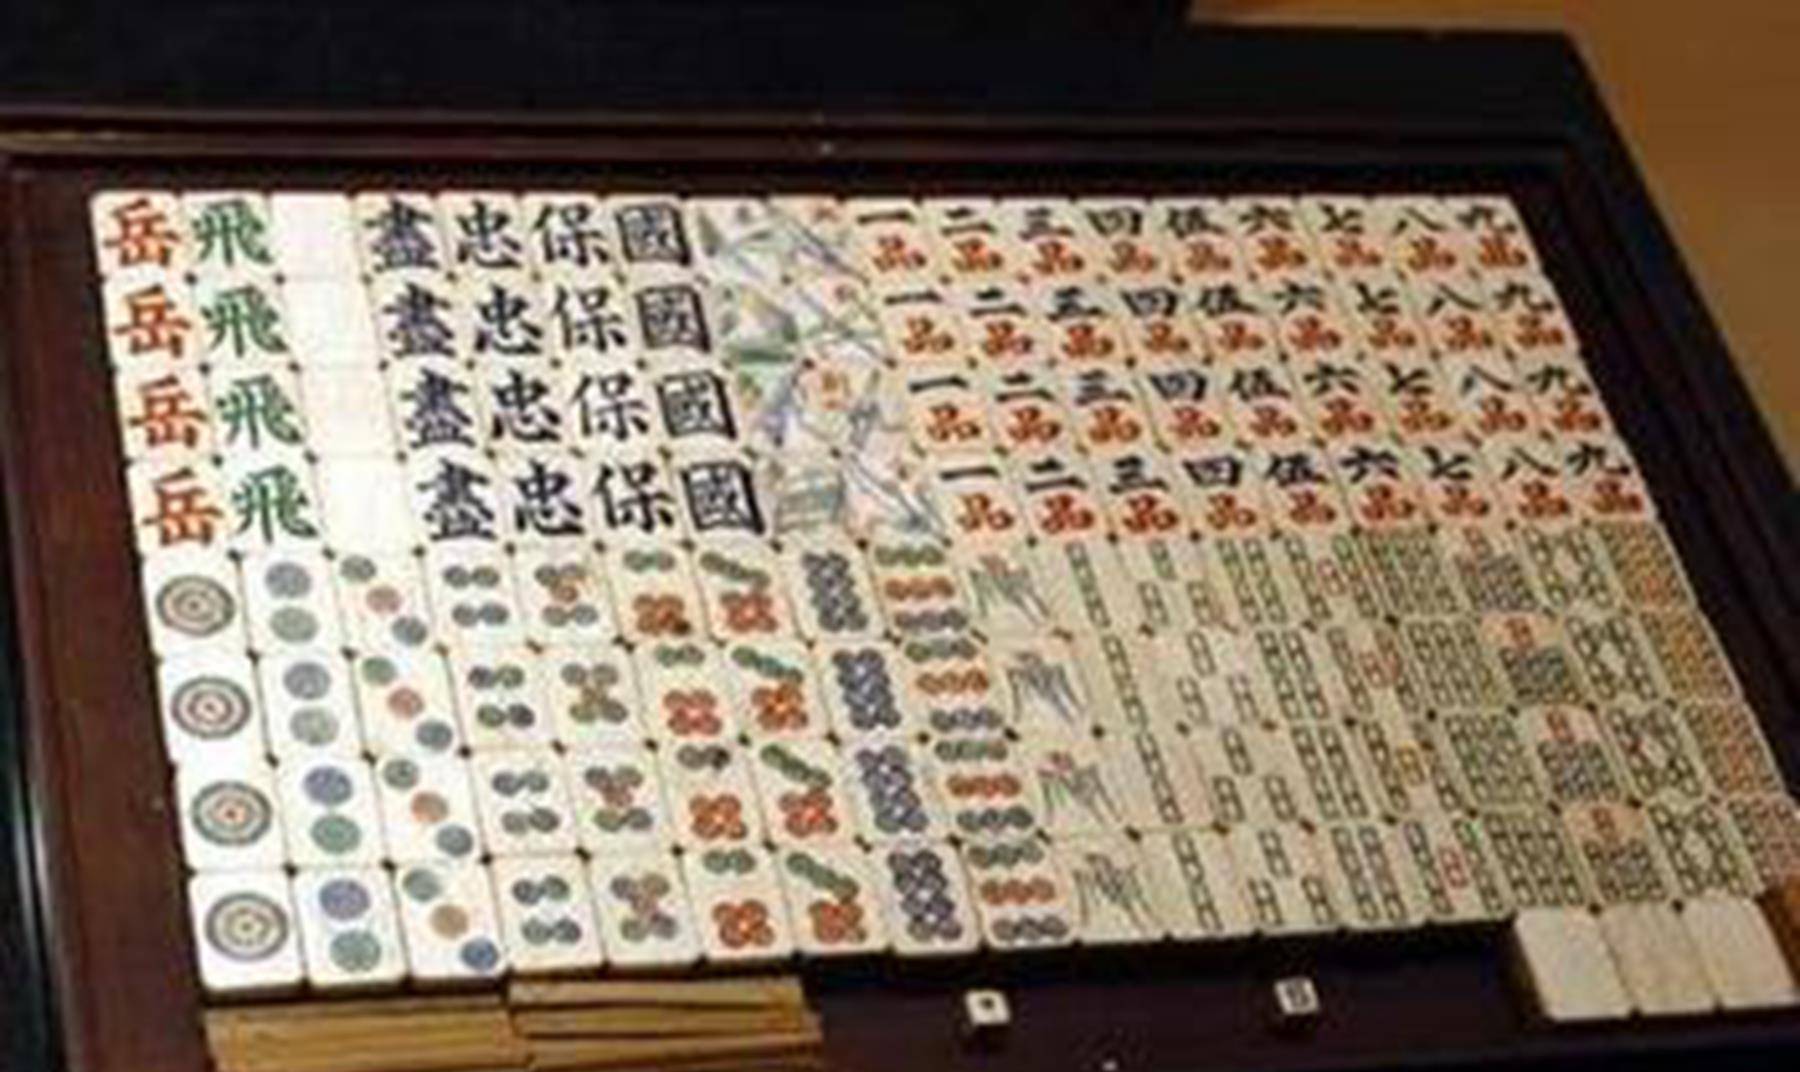 岳飛盡忠保國一二三四伍六七八九
品品品品品品品品品
岳飛盡忠保國一二三四伍六七八九
品品品品品品品品品
岳飛盡忠保國一二三四伍六七八九
品品品品品品品品品
岳飛盡忠保國一二三四伍六七八九
品品品品品品品品品